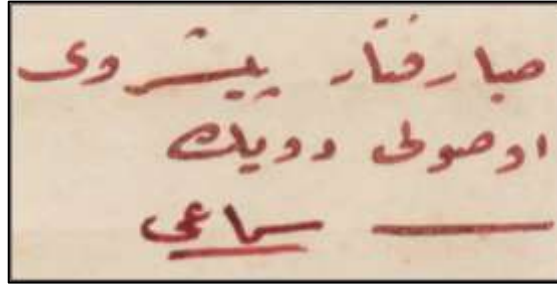 صبا رفتار پیشروی
اوصولی دویك
سماعی